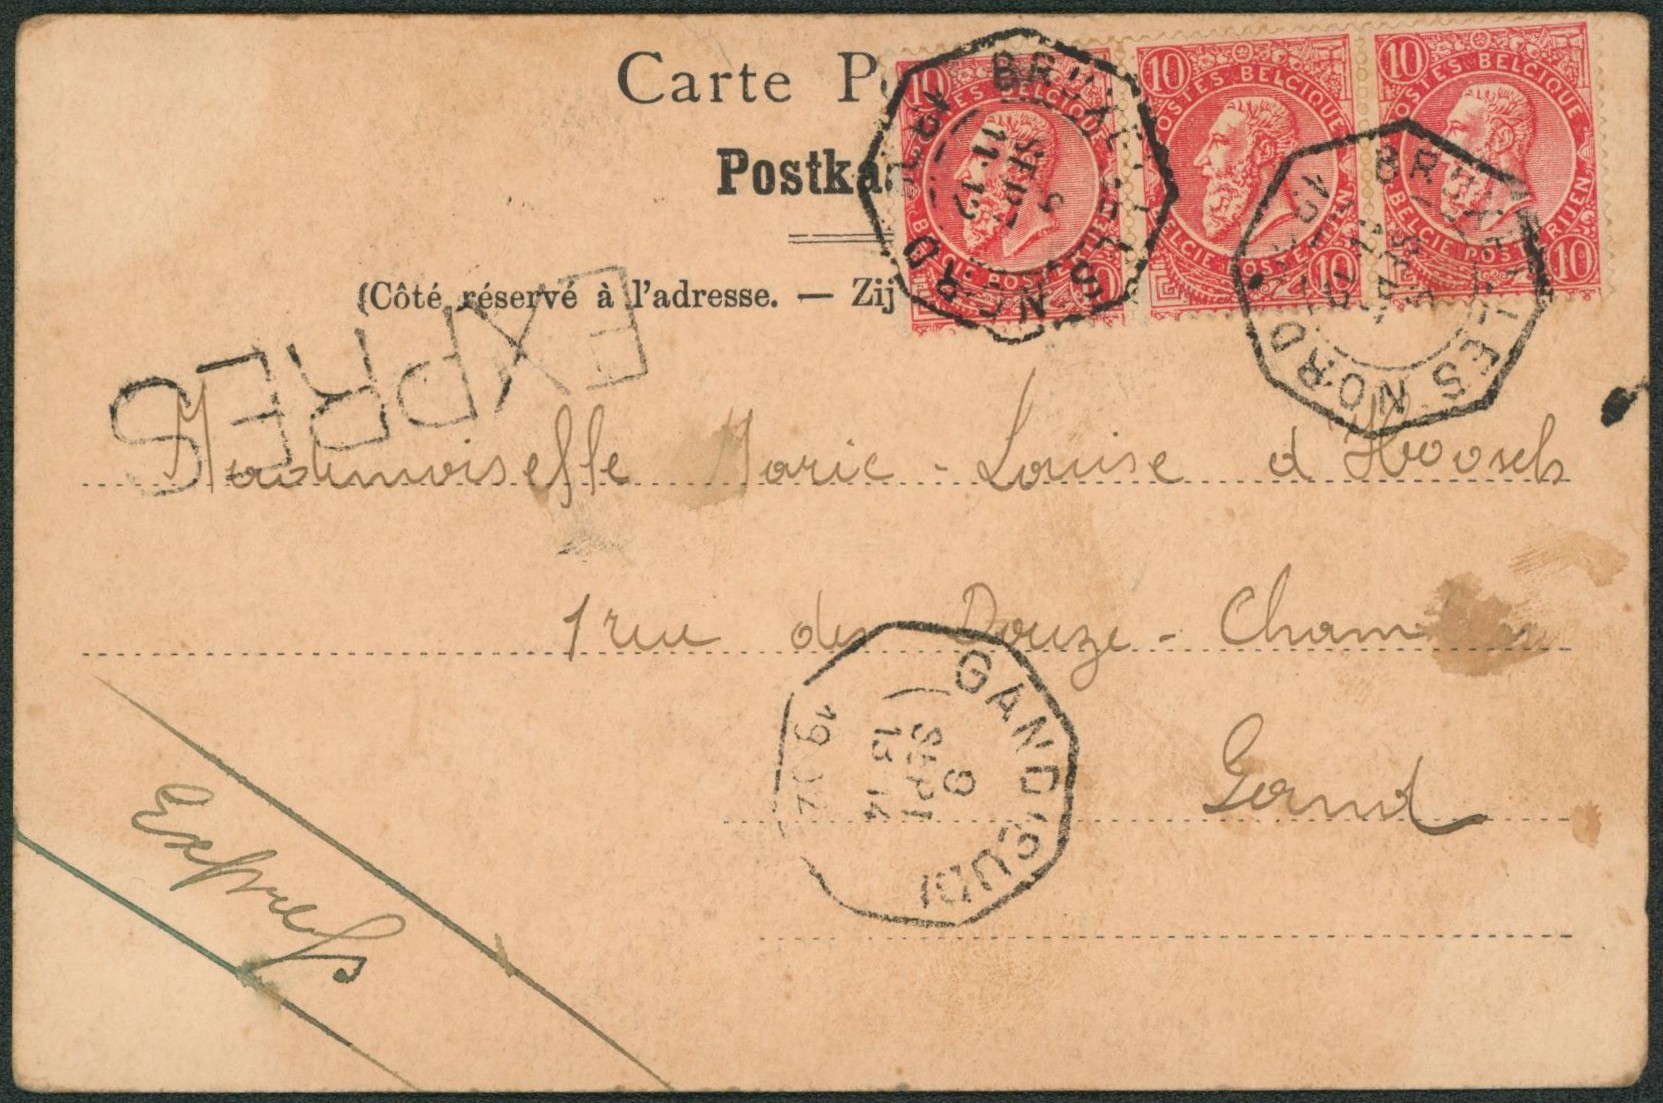 Carte P
Postka
(Côté réservé à l'adresse. — Zij
10 POSTES BELGIQUE
BELGIE POSTERIJEN 10
10 POSTES BELGIQUE
BELGIE POSTERIJEN 10
10 POSTES BELGIQUE
BELGIE POSTERIJEN 10
BRUXELLES NORD
SEPT
11-12
BRUXELLES NORD
EXPRES
Mademoiselle Marie-Louise d'Hoosch
1 rue des Douze-Cham
Gand
GAND
9
SEPT
13-14
Express